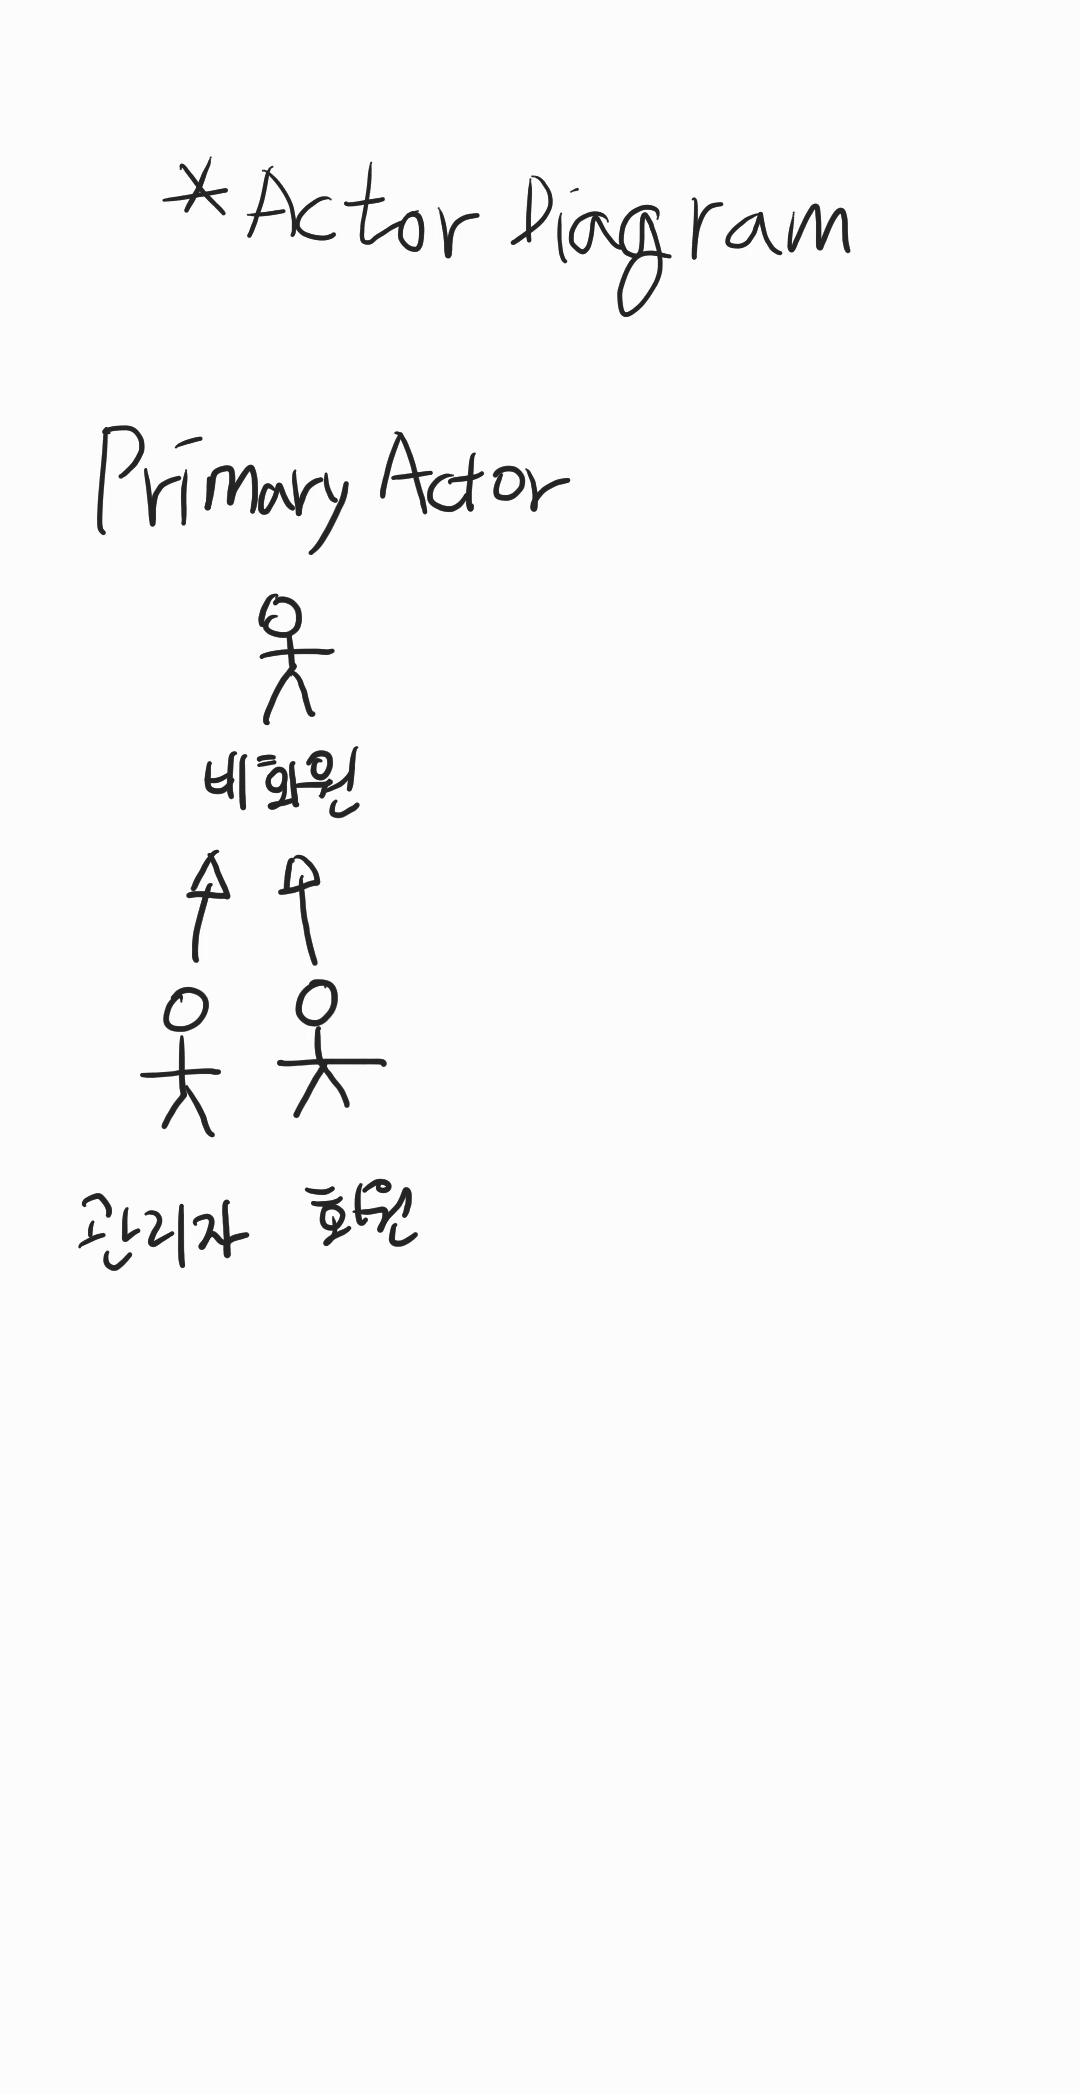 *Actor Diagram
Primary Actor
비회원
관리자 회원